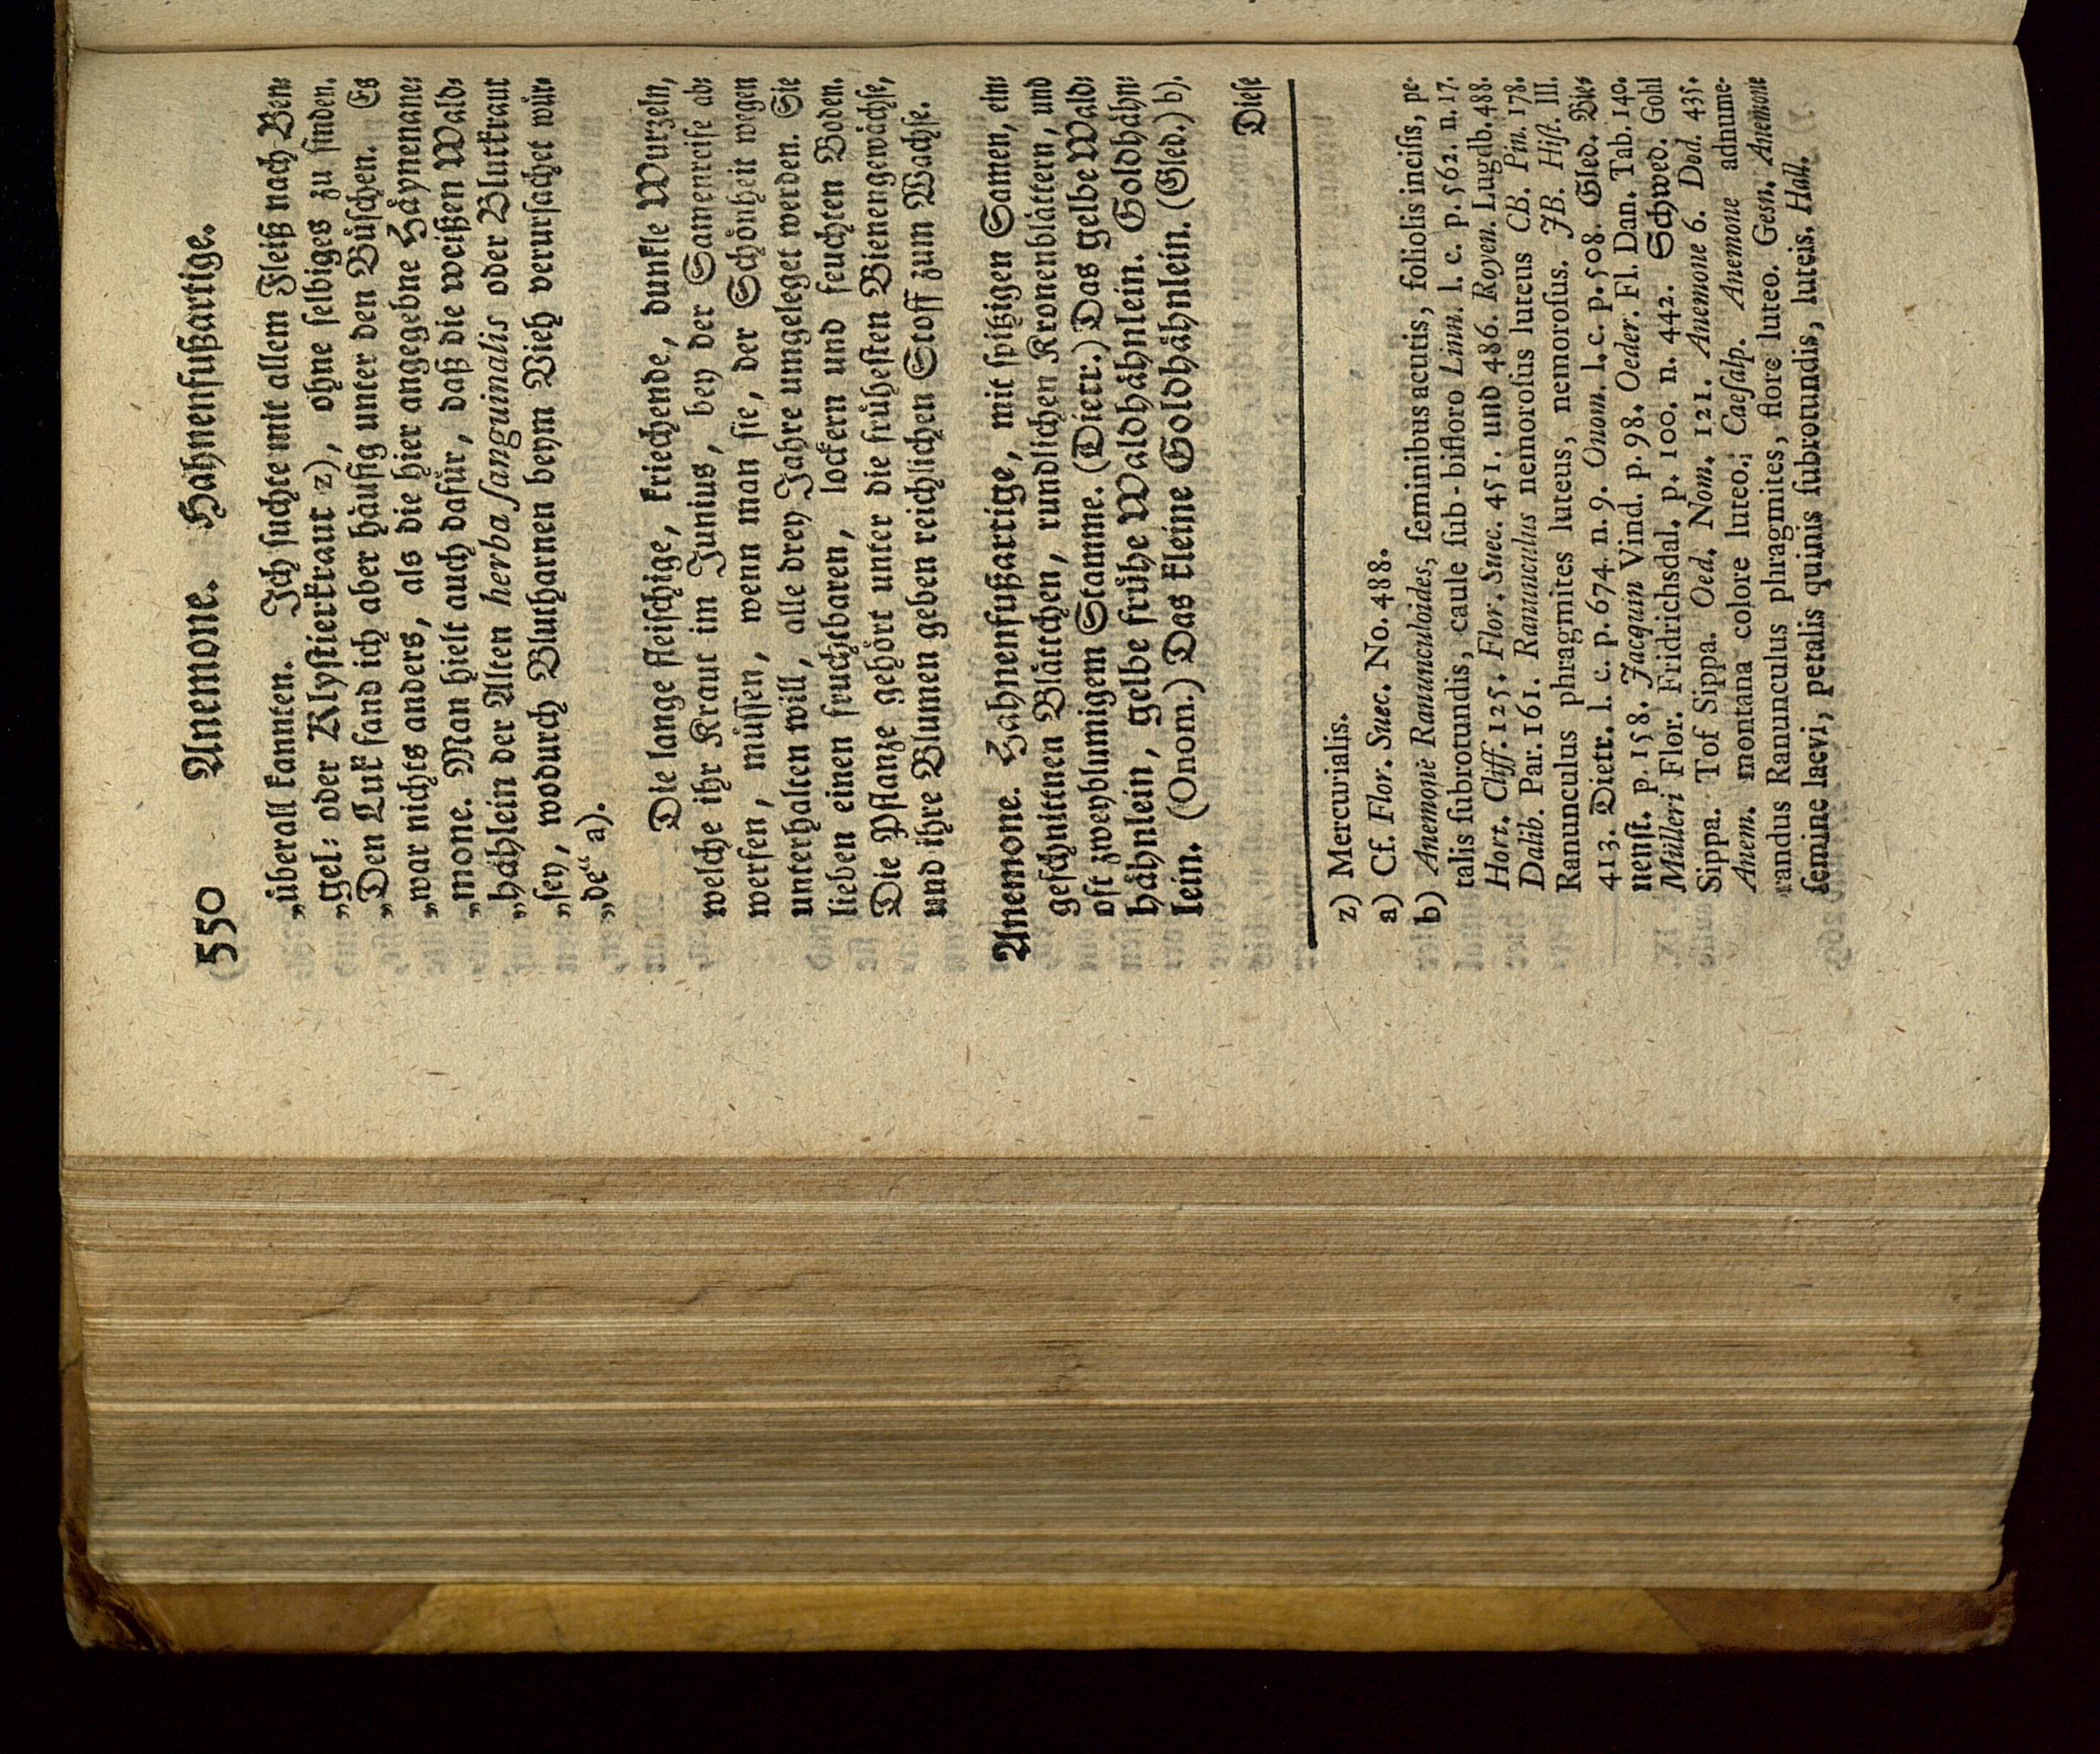 550 Anemone. Hahnenfußartige.
„überall kannten. Ich suchte mit allem Fleiß nach Ben⸗
„gel⸗ oder Klystierkraut z), ohne selbiges zu finden.
„Den Luk fand ich aber häufig unter den Büschen. Es
„war nichts anders, als die hier angegebne Häynenane⸗
„mone. Man hielt auch dafür, daß die weißen Wald⸗
„hählein der Alten herba sanguinalis oder Blutkraut
„sey, wodurch Blutharnen beym Vieh verursachet wür⸗
„de“ a).
Die lange fleischige, kriechende, dunkle Wurzeln,
welche ihr Kraut im Junius, bey der Samenreife ab⸗
werfen, müssen, wenn man sie, der Schönheit wegen
unterhalten will, alle drey Jahre umgeleget werden. Sie
lieben einen fruchtbaren, lockern und feuchten Boden.
Die Pflanze gehört unter die frühesten Bienengewächse,
und ihre Blumen geben reichlichen Stoff zum Wachse.
Anemone. Hahnenfußartige, mit spitzigen Samen, ein⸗
geschnittnen Blättchen, rundlichen Kronenblättern, und
oft zweyblumigem Stamme. (Dietr.) Das gelbe Wald⸗
hähnlein, gelbe frühe Waldhähnlein. Goldhähn⸗
lein. (Onom.) Das kleine Goldhähnlein. (Gled.) b).
Diese
z) Mercurialis.
a) Cf. Flor. Suec. No. 488.
b) Anemone Ranunculoides, seminibus acutis, foliolis incisis, pe-
talis subrotundis, caule sub-bifloro Linn. l. c. p. 562. n. 17.
Hort. Cliff. 125. Flor. Suec. 451. und 486. Royen. Lugdb. 488.
Dalib. Par. 161. Ranunculus nemorosus luteus CB. Pin. 178.
Ranunculus phragmites luteus, nemorosus. JB. Hist. III.
413. Dietr. l. c. p. 674. n. 9. Onom. l. c. p. 508. Gled. Bie⸗
nenst. p. 158. Jacquin Vind. p. 98. Oeder. Fl. Dan. Tab. 140.
Mülleri Flor. Fridrichsdal. p. 100. n. 442. Schwed. Gohl
Sippa. Tof Sippa. Oed. Nom. 121. Anemone 6. Dod. 435.
Anem. montana colore luteo.; Caesalp. Anemone adnume-
randus Ranunculus phragmites, flore luteo. Gesn. Anemone
semine laevi, petalis quinis subrotundis, luteis. Hall.